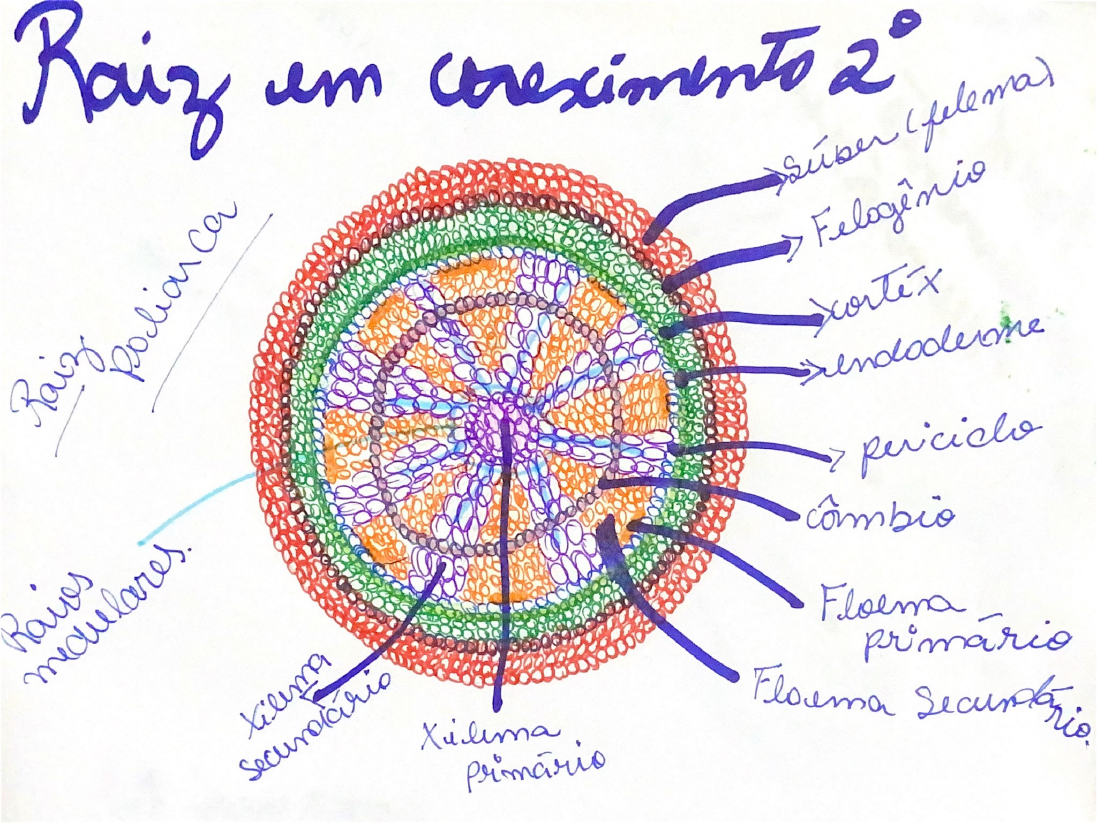 Raiz em corescimento 2º
Súber (felema)
Felogênio
cortéx
endoderme
periciclo
câmbio
Floema
primário
Floema Secundário.
Xilema
primário
Xilema
secundário
Raios
medulares.
Raiz
Poliarca